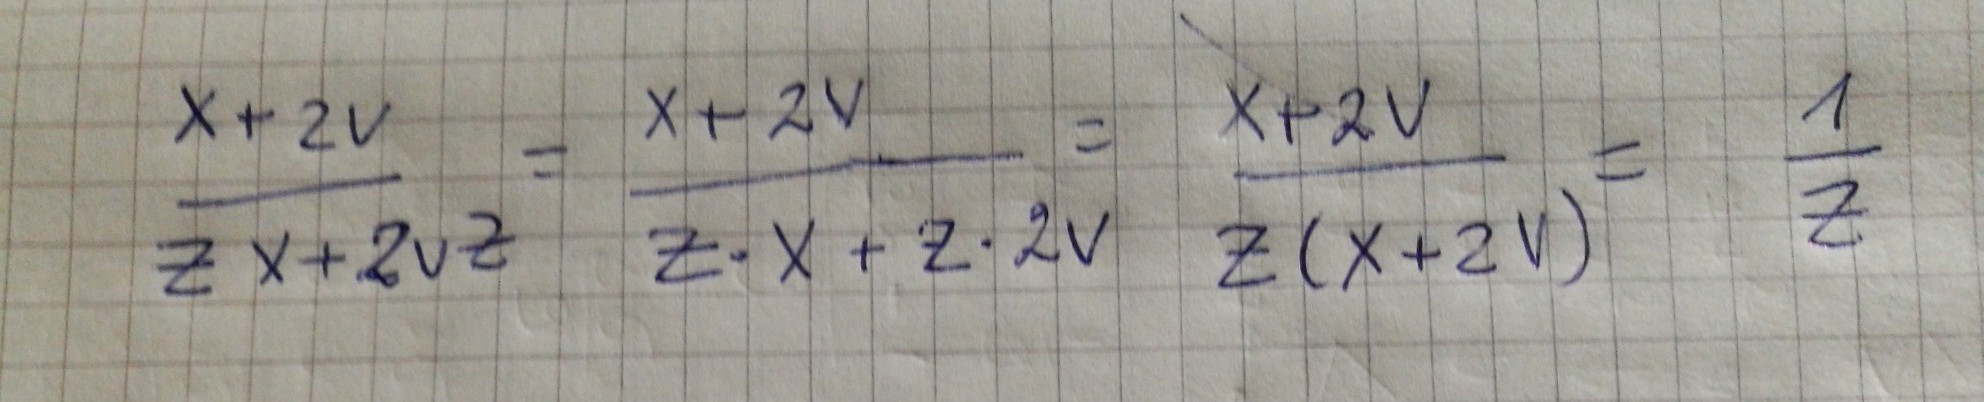 x+2v/zx+2vz = x+2v/z·x+z·2v = x+2v/z(x+2v) = 1/z